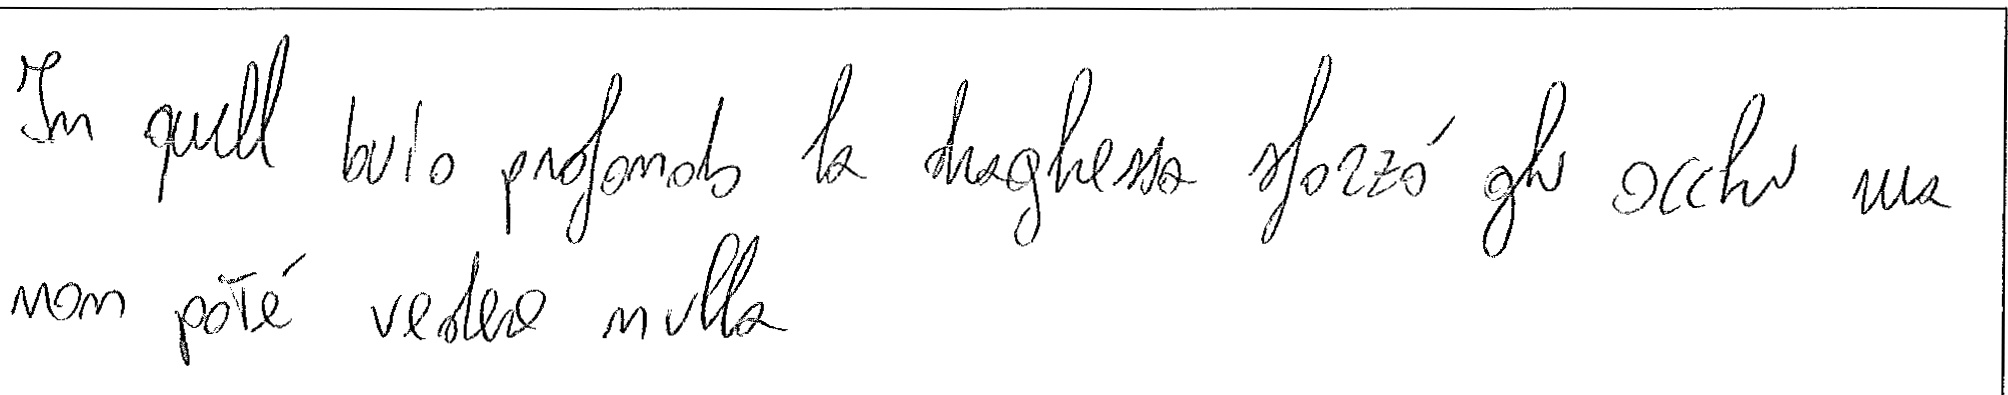 In quell buio profondo la draghessa sforzó gli occhi ma
non poté vedere nulla